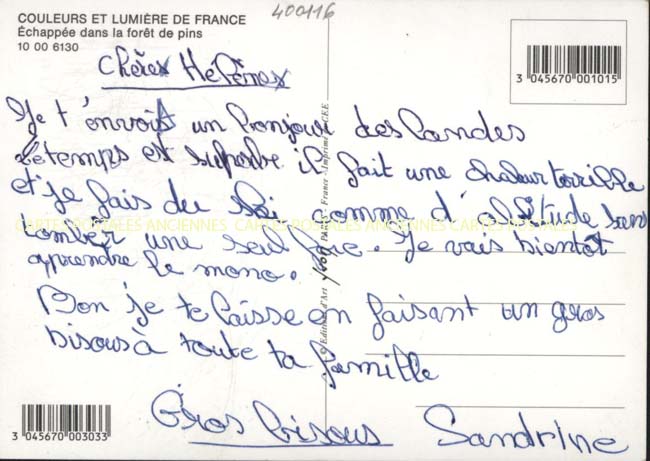 COULEURS ET LUMIÈRE DE FRANCE
Échappée dans la forêt de pins
10 00 6130
400116
3 045670 001015
Chères Hélènes
Je t'envois un bonjour des landes
letemps est superbe il fait une chaleur torrible
et je fais du ski comme d'abitude sans
tomber une seul fois. Je vais bientôt
apprendre le mono.
Bon je te laisse en faisant un gros
bisous à toute ta famille
Gros bisous Sandrine
3 045670 003033
CARTES POSTALES ANCIENNES CARTES POSTALES ANCIENNES CARTES POSTALES ANCIENNES
© Editions d'Art PARIS - France - Imprimé